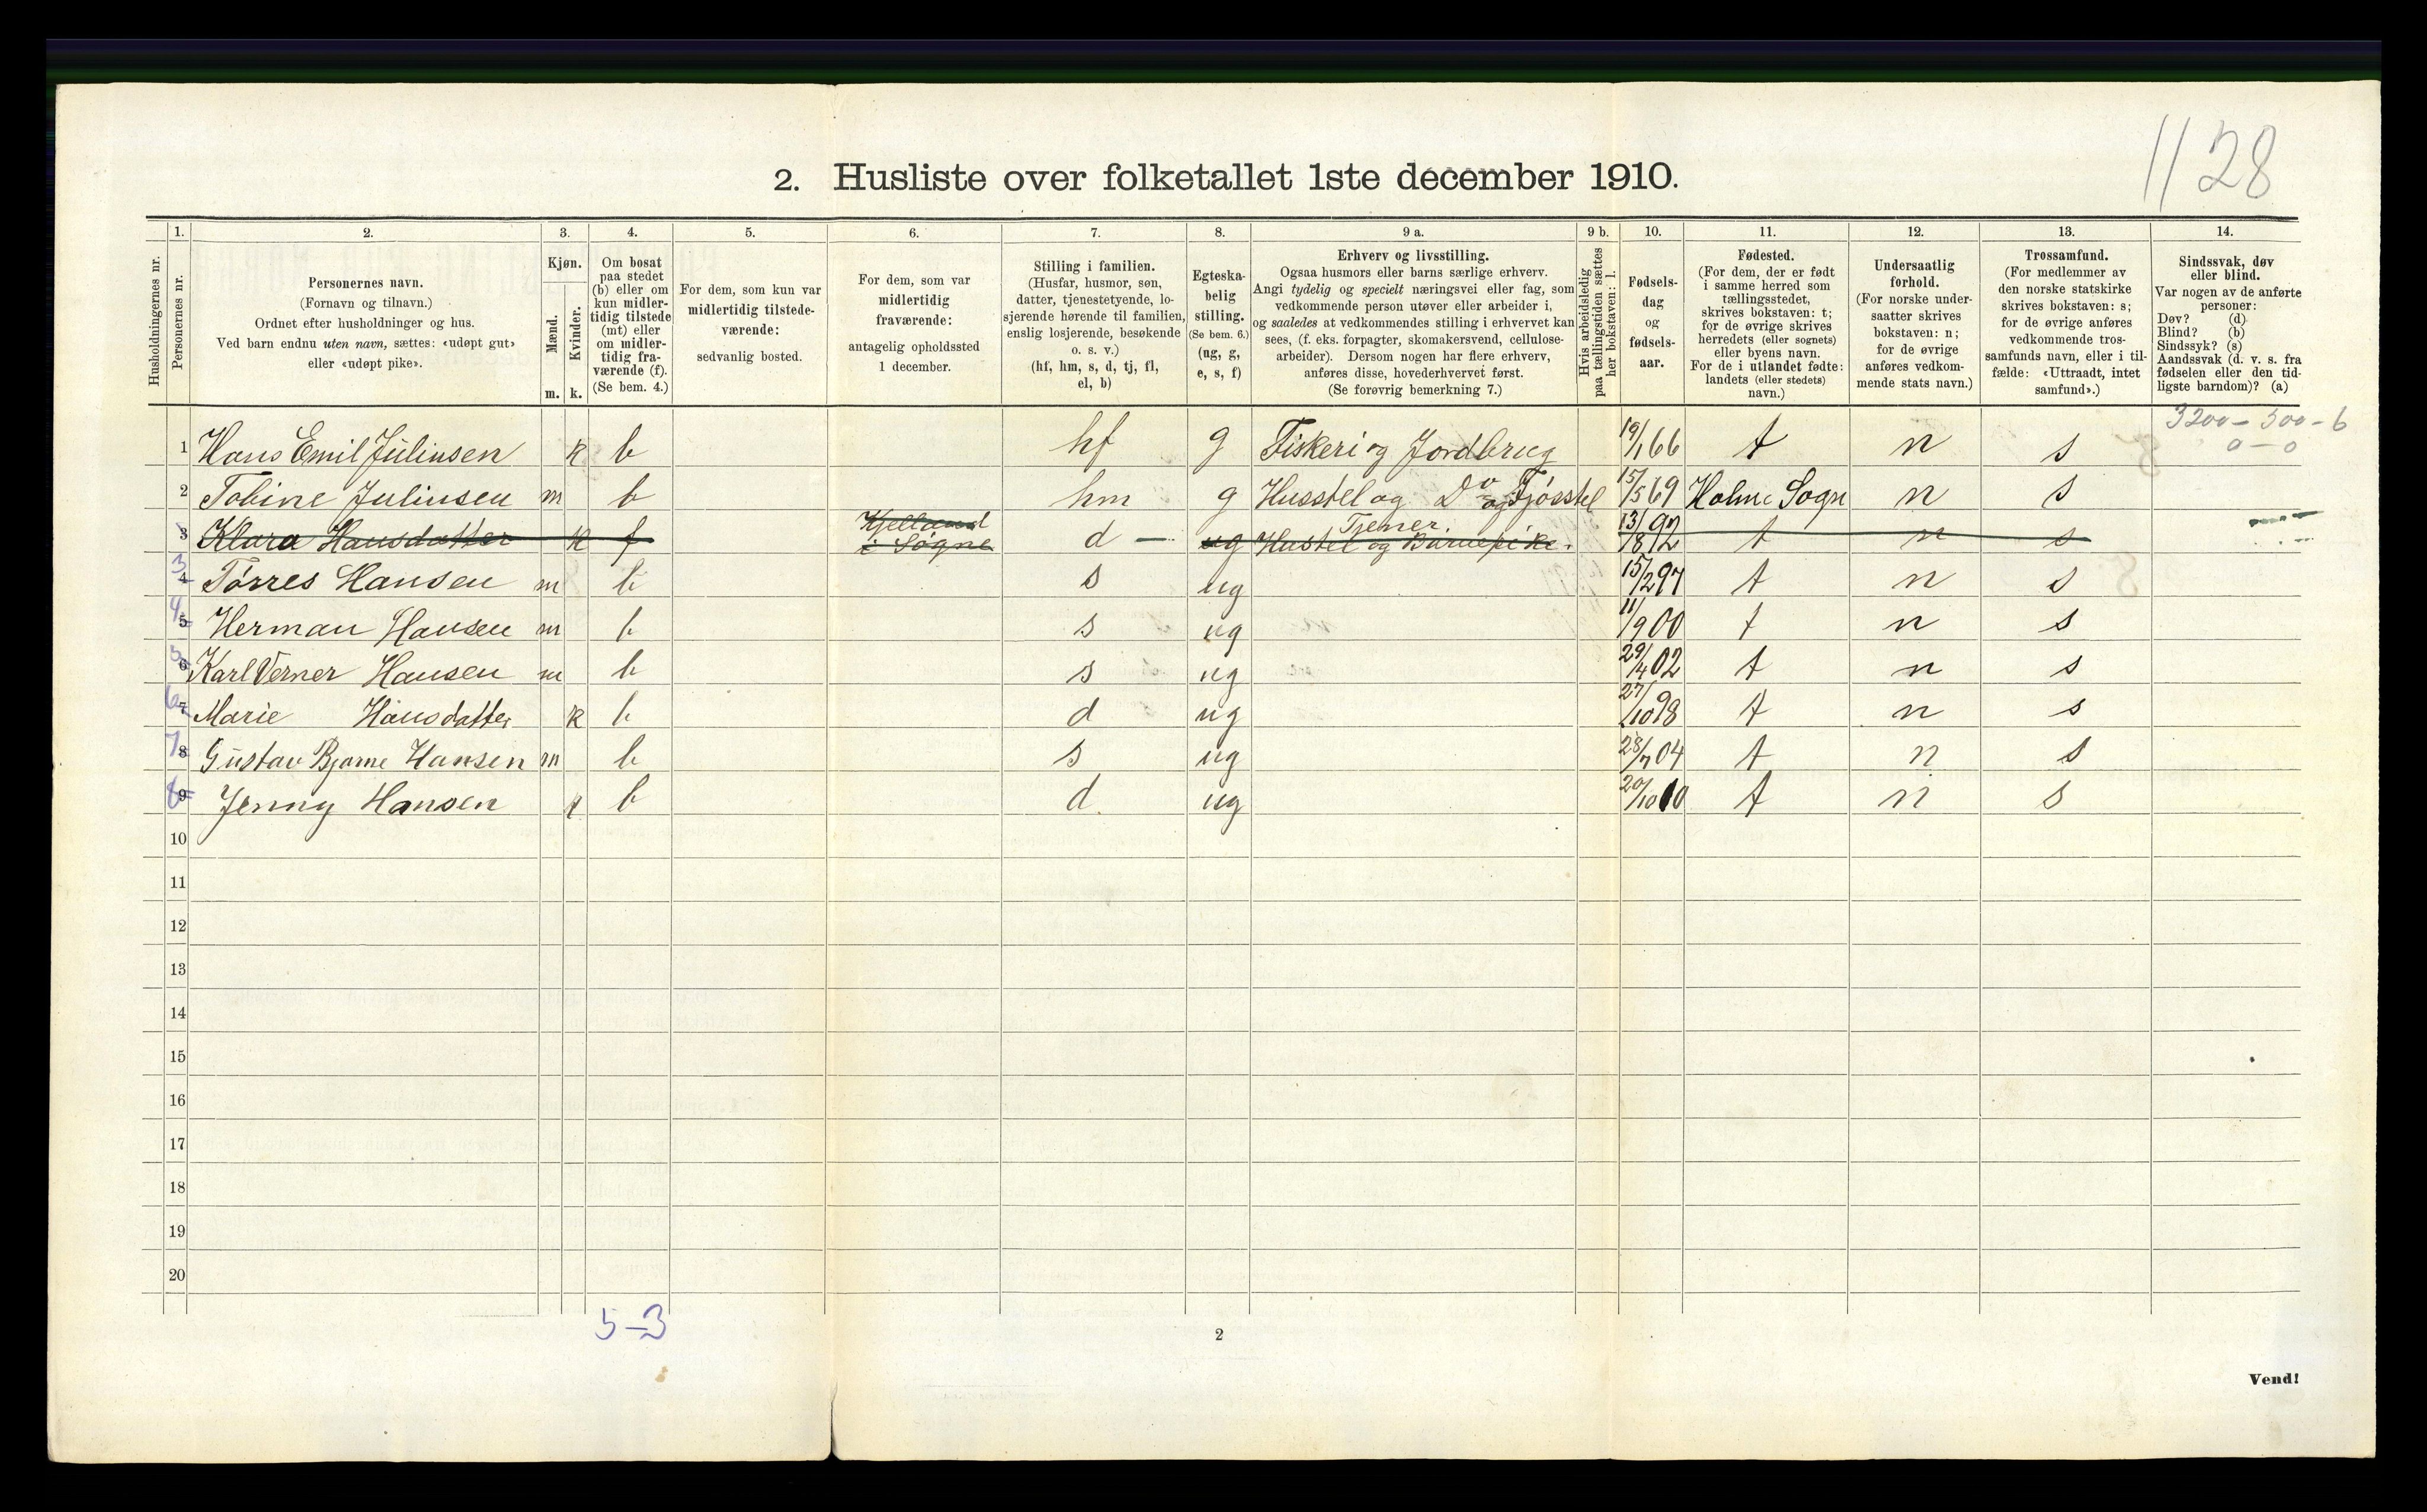 11 28
2. Husliste over folketallet 1ste december 1910.
Husholdningernes nr.
1. Personernes nr.
2. Personernes navn.
(Fornavn og tilnavn.)
Ordnet efter husholdninger og hus.
Ved barn endnu uten navn, sættes: «udøpt gut»
eller «udøpt pike».
3. Kjøn.
Mænd. Kvinder.
m. k.
4. Om bosat
paa stedet
(b) eller om
kun midler-
tidig tilstede
(mt) eller
om midler-
tidig fra-
værende (f).
(Se bem. 4.)
5. For dem, som kun var
midlertidig tilstede-
værende:
sedvanlig bosted.
6. For dem, som var
midlertidig
fraværende:
antagelig opholdssted
1 december.
7. Stilling i familien.
(Husfar, husmor, søn,
datter, tjenestetyende, lo-
sjerende hørende til familien,
enslig losjerende, besøkende
o. s. v.)
(hf, hm, s, d, tj, fl,
el, b)
8. Egteska-
belig
stilling.
(Se bem. 6.)
(ug, g,
e, s, f)
9 a. Erhverv og livsstilling.
Ogsaa husmors eller barns særlige erhverv.
Angi tydelig og specielt næringsvei eller fag, som
vedkommende person utøver eller arbeider i,
og saaledes at vedkommendes stilling i erhvervet kan
sees, (f. eks. forpagter, skomakersvend, cellulose-
arbeider). Dersom nogen har flere erhverv,
anføres disse, hovederhvervet først.
(Se forøvrig bemerkning 7.)
9 b. Hvis arbeidsledig
paa tællingstiden sættes
her bokstaven: l.
10. Fødsels-
dag
og
fødsels-
aar.
11. Fødested.
(For dem, der er født
i samme herred som
tællingsstedet,
skrives bokstaven: t;
for de øvrige skrives
herredets (eller sognets)
eller byens navn.
For de i utlandet fødte:
landets (eller stedets)
navn.)
12. Undersaatlig
forhold.
(For norske under-
saatter skrives
bokstaven: n;
for de øvrige
anføres vedkom-
mende stats navn.)
13. Trossamfund.
(For medlemmer av
den norske statskirke
skrives bokstaven: s;
for de øvrige anføres
vedkommende tros-
samfunds navn, eller i til-
fælde: «Uttraadt, intet
samfund».)
14. Sindssvak, døv
eller blind.
Var nogen av de anførte
personer:
Døv? (d)
Blind? (b)
Sindssyk? (s)
Aandssvak (d. v. s. fra
fødselen eller den tid-
ligste barndom)? (a)
3200 - 500 - 6
0 - 0
1 Hans Emil Juliusen k b hf g Fiskeri og Jordbrug 19/1 66 t n s
2 Tobine Juliusen m b hm g Husstel og Do og Fjøsstel 15/5 69 Holme Sogn n s
3 Klara Hansdatter k f Kjelland i Søgne d - ug Hustel og Barnepike. Tjener. 13/8 92 t n s
3 4 Tørres Hansen m b s ug 15/2 97 t n s
4 5 Herman Hansen m b s ug 11/9 00 t n s
5 6 Karl Verner Hansen m b s ug 29/4 02 t n s
6 7 Marie Hansdatter k b d ug 27/10 98 t n s
7 8 Gustav Bjarne Hansen m b s ug 28/7 04 t n s
8 9 Jenny Hansen k b d ug 20/10 10 t n s
10
11
12
13
14
15
16
17
18
19
20
5-3
2
Vend!